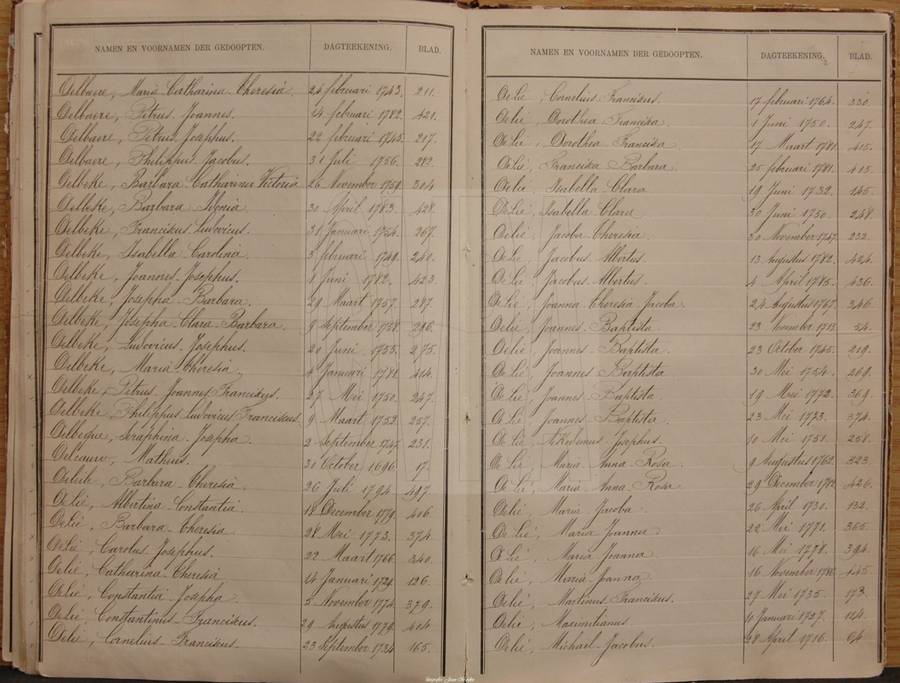 NAMEN EN VOORNAMEN DER GEDOOPTEN. DAGTEEKENING. BLAD.
Delbaere, Maria Catharina Theresia 24 februari 1743. 211.
Delbaere, Petrus Joannes. 14 februari 1782. 421.
Delbaere, Petrus Josephus. 22 februari 1745. 217.
Delbaere, Philippus Jacobus. 31 Juli 1756. 282.
Delbeke, Barbara Catharina Victoria 26 November 1759. 304.
Delbeke, Barbara 30 April 1783. 428.
Delbeke, Franciscus Ludovicus. 31 Januari 1754. 267.
Delbeke, Isabella Carolina. 3 februari 1749. 240.
Delbeke, Joannes Josephus. 1 Juni 1782. 423.
Delbeke, Josepha Barbara. 29 Maart 1757. 287.
Delbeke, Josepha Clara Barbara. 9 September 1758. 296.
Delbeke, Ludovicus Josephus. 20 Juni 1755. 275.
Delbeke, Maria Theresia. 4 Januari 1781. 414.
Delbeke, Petrus Joannes Franciscus. 27 Mei 1750. 247.
Delbeke, Philippus Ludovicus Franciscus. 9 Maart 1752. 257.
Seraphina Josepha. 2 September 1747. 231.
Delcauw, Matheus. 30 October 1696. 17.
Barbara Theresia. 26 Juli 1794. 497.
Delie, Albertina Constantia. 18 December 1779. 406.
Delie, Barbara Theresia. 28 Mei 1773. 374.
Delie, Carolus Josephus. 22 Maart 1766. 340.
Delie, Catharina Theresia 14 Januari 1729. 126.
Delie, Constantia Josepha. 5 November 1774. 379.
Delie, Constantinus Franciscus. 29 Augustus 1779. 404.
Delie, Cornelius Franciscus. 23 September 1734. 165.
NAMEN EN VOORNAMEN DER GEDOOPTEN. DAGTEEKENING. BLAD.
Delie, Cornelius Franciscus. 17 februari 1764. 330.
Delie, Dorothea Francisca. 1 Juni 1750. 247.
Delie, Dorothea Francisca. 17 Maart 1781. 415.
Delie, Francisca Barbara. 25 februari 1781. 415.
Delie, Isabella Clara 19 Juni 1732. 145.
Delie, Isabella Clara 30 Juni 1750. 248.
Delie, Jacoba Theresia. 30 November 1747. 232.
Delie, Jacobus Albertus. 13 Augustus 1782. 424.
Delie, Jacobus Albertus. 4 April 1785. 436.
Delie, Joanna Theresia Jacoba 24 Augustus 1767. 346.
Delie, Joannes Baptista. 23 54.
Delie, Joannes Baptista. 23 October 1745. 219.
Delie, Joannes Baptista 30 Mei 1754. 269.
Delie, Joannes Baptista. 19 Mei 1772. 369.
Delie, Joannes Baptista. 23 Mei 1773. 374.
Delie, Josephus. 10 Mei 1751. 258.
Delie, Maria Anna Rosa. 9 Augustus 1762. 323.
Delie, Maria Anna Rosa 29 December 1782. 426.
Delie, Maria Jacoba. 26 April 1730. 132.
Delie, Maria Joanna. 22 Mei 1771. 365.
Delie, Maria Joanna. 16 Mei 1778. 394.
Delie, Maria Joanna. 16 November
Delie, Martinus Franciscus. 27 Mei 1735. 173.
Delie, Maximilianus. 10 Januari 1727. 114.
Delie, Michael Jacobus. 28 April 1716. 64.